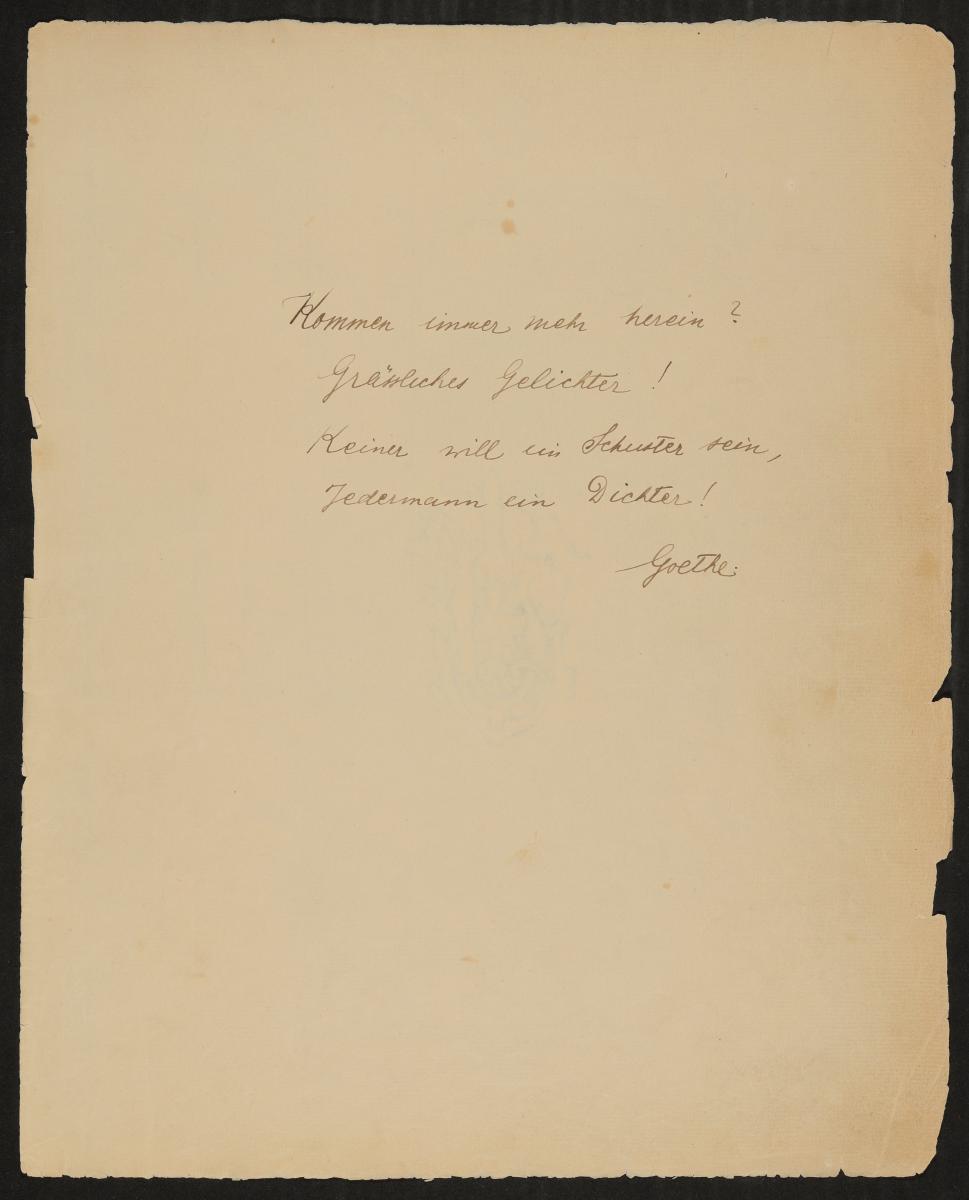 Kommen immer mehr herein?
Grässliches Gelichter!
Keiner will ein Schuster sein,
Jedermann ein Dichter!
Goethe.